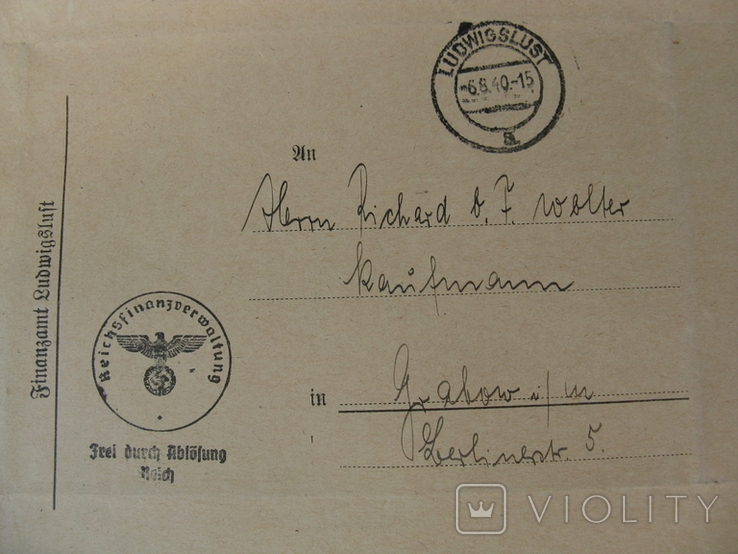 LUDWIGSLUST
-6.8.40.-15
a
An
Herrn Richard b. F. Wolter
Kaufmann
Finanzamt Ludwigslust
Reichsfinanzverwaltung
Frei durch Ablösung
Reich
in Grabow i/m
Berlinerstr. 5.
VIOLITY